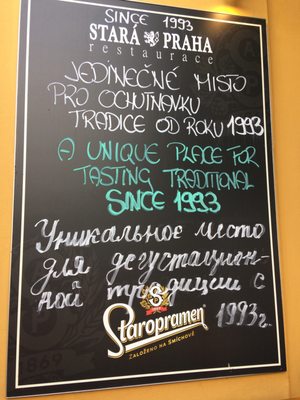 SINCE 1993
STARÁ PRAHA
restaurace
JEDINEČNÉ MÍSTO
PRO OCHUTNÁVKU
TRADICE OD ROKU 1993
A UNIQUE PLACE FOR
TASTING TRADITIONAL
SINCE 1993
Уникальное место
для дегустацион-
ной традиции с
1993г.
Staropramen
ZALOŽENO NA SMÍCHOVĚ